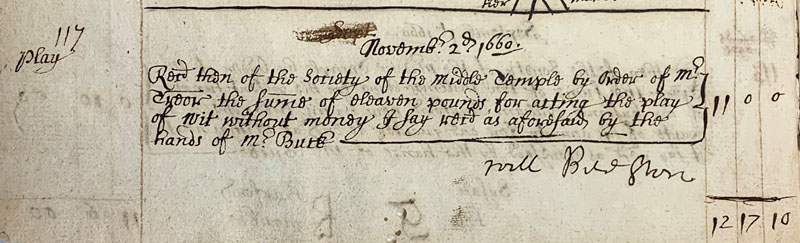 117
Play
Novemb:r 2d, 1660.
Rec'd then of the Society of the Middle Temple by order of mr
Treor the sume of eleaven pounds for acting the play 11 0 0
of wit without money I say rec'd as aforesaid by the
hands of mr Buck
will
12 17 10